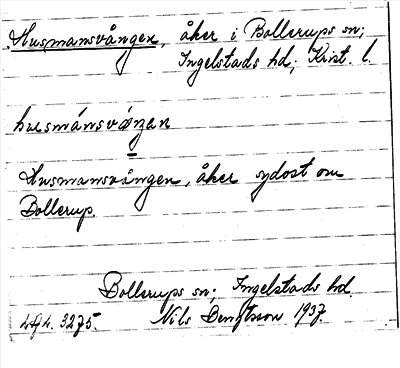 Husmansvången, åker i Bollerups sn;
Ingelstads hd; Krist. l.
husmánsváŋan
Husmansvången, åker sydost om
Bollerup.
Bollerups sn; Ingelstads hd.
Nils Bengtsson 1937.
3275.